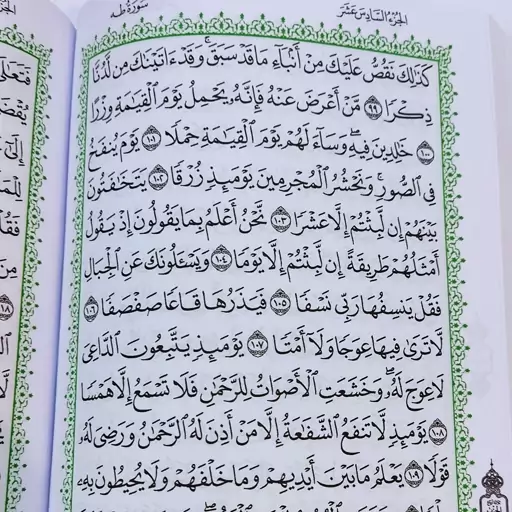 الجزء السادس عشر
سورة طه
كَذَٰلِكَ نَقُصُّ عَلَيْكَ مِنْ أَنۢبَآءِ مَا قَدْ سَبَقَ ۚ وَقَدْ ءَاتَيْنَٰكَ مِن لَّدُنَّا
ذِكْرًا ٩٩ مَّنْ أَعْرَضَ عَنْهُ فَإِنَّهُۥ يَحْمِلُ يَوْمَ ٱلْقِيَٰمَةِ وِزْرًا
١٠٠ خَٰلِدِينَ فِيهِ ۖ وَسَآءَ لَهُمْ يَوْمَ ٱلْقِيَٰمَةِ حِمْلًا ١٠١ يَوْمَ يُنفَخُ
فِى ٱلصُّورِ ۚ وَنَحْشُرُ ٱلْمُجْرِمِينَ يَوْمَئِذٍ زُرْقًا ١٠٢ يَتَخَٰفَتُونَ
بَيْنَهُمْ إِن لَّبِثْتُمْ إِلَّا عَشْرًا ١٠٣ نَّحْنُ أَعْلَمُ بِمَا يَقُولُونَ إِذْ يَقُولُ
أَمْثَلُهُمْ طَرِيقَةً إِن لَّبِثْتُمْ إِلَّا يَوْمًا ١٠٤ وَيَسْـَٔلُونَكَ عَنِ ٱلْجِبَالِ
فَقُلْ يَنسِفُهَا رَبِّى نَسْفًا ١٠٥ فَيَذَرُهَا قَاعًا صَفْصَفًا ١٠٦
لَّا تَرَىٰ فِيهَا عِوَجًا وَلَآ أَمْتًا ١٠٧ يَوْمَئِذٍ يَتَّبِعُونَ ٱلدَّاعِىَ
لَا عِوَجَ لَهُۥ ۖ وَخَشَعَتِ ٱلْأَصْوَاتُ لِلرَّحْمَٰنِ فَلَا تَسْمَعُ إِلَّا هَمْسًا
١٠٨ يَوْمَئِذٍ لَّا تَنفَعُ ٱلشَّفَٰعَةُ إِلَّا مَنْ أَذِنَ لَهُ ٱلرَّحْمَٰنُ وَرَضِىَ لَهُۥ
قَوْلًا ١٠٩ يَعْلَمُ مَا بَيْنَ أَيْدِيهِمْ وَمَا خَلْفَهُمْ وَلَا يُحِيطُونَ بِهِۦ